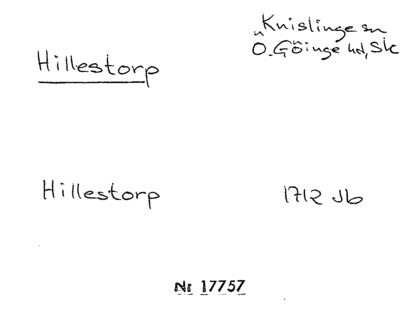 Knislinge sn
Hillestorp
Ö. Göinge hd, Sk
Hillestorp
1712 Jb
Nr 17757